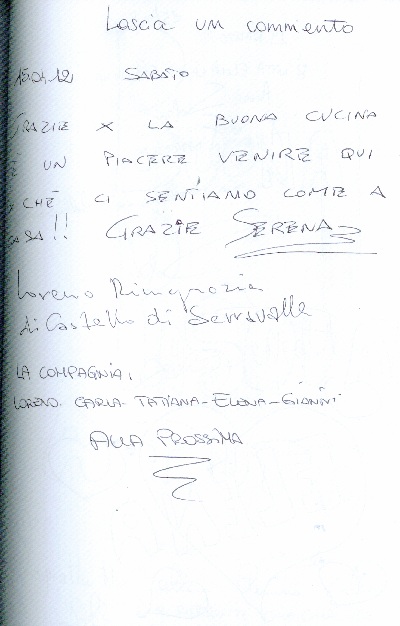 Lascia un commento
15.01.12 SABATO
GRAZIE X LA BUONA CUCINA
È UN PIACERE VENIRE QUI
CHÉ CI SENTIAMO COME A
CASA!! GRAZIE SERENA
Loreno Ringrazia
di Castello di Serravalle
LA COMPAGNIA,
LORENO CARLA - TATIANA - ELENA - GIANNI
ALLA PROSSIMA